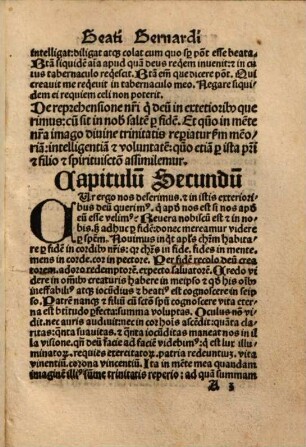 Beati Bernardi
intelligat: diligat atq; colat cum quo sp̱ põt esse beata.
Btã siquidẽ aĩa apud quã deus reqẽm inuenit: ⁊ in cui⁹
tabernaculo reqẽscit. Btã em̃ que dicere põt. Qui
creauit me requeuit in tabernaculo meo. Negare siqui⸗
dem ei requiem celi non poterit.
De reprehensione nr̃i q̃ deũ in exteriorib⁹ que
rimus: cũ sit in nob̃ saltẽ ꝑ fidẽ. Et quõ in mẽte
nr̃a imago diuine trinitatis repiatur ẽm mẽmo
riã: intelligentiã ⁊ voluntatẽ: quõ etiã ꝑ ista pr̃i
⁊ filio ⁊ spirituiscto assimilemur.
Capitulũ Secundũ
CUr ergo nos deserimus. ⁊ in istis exteriori⸗
bus deũ querim⁹. q̃ apd̾ nos est si nos apud
eũ esse velim⁹? Reuera nobiscũ est ⁊ in no⸗
bis. ß adhuc ꝑ fidẽ: donec mereamur videre
ꝑ spẽm. Nouimus inq̃t apl̃s chr̃m habita
re ꝑ fidẽ in cordib̾ nr̃is: qꝛ chr̃s in fide. fides in mente.
mens in corde. cor in pectore. Per fidẽ recolo deũ crea
torem. adoro redemptorẽ. expecto saluatorẽ. Credo vi
dere in omib̾ creaturis habere in meipso ⁊ qd̾ his oib̾
ineffabilr̃ atq; iocũdius ⁊ beati⁹ est cognoscere in seipso.
Patrẽ nanq; ⁊ filiũ cũ sctõ spũ cognoscere vita eterna
est btitudo ꝑfecta: summa voluptas. Oculus nõ vi⸗
dit. nec auris audiuit: nec in cor hois ascẽdit: quãta cla
ritas: q̃nta suauitas. ⁊ q̃nta iocũditas maneat nos in il
la visione. qñ deũ facie ad faciẽ videbim⁹: q̃ est lux illu
minatoꝝ. requies exercitatoꝝ. patria redeuntiuz. vita
viuentiũ. corona vincentiũ. Ita in mẽte mea quandam
imaginẽ illi⁹ sũme trinitatis reperio: ad quã summam
A 3